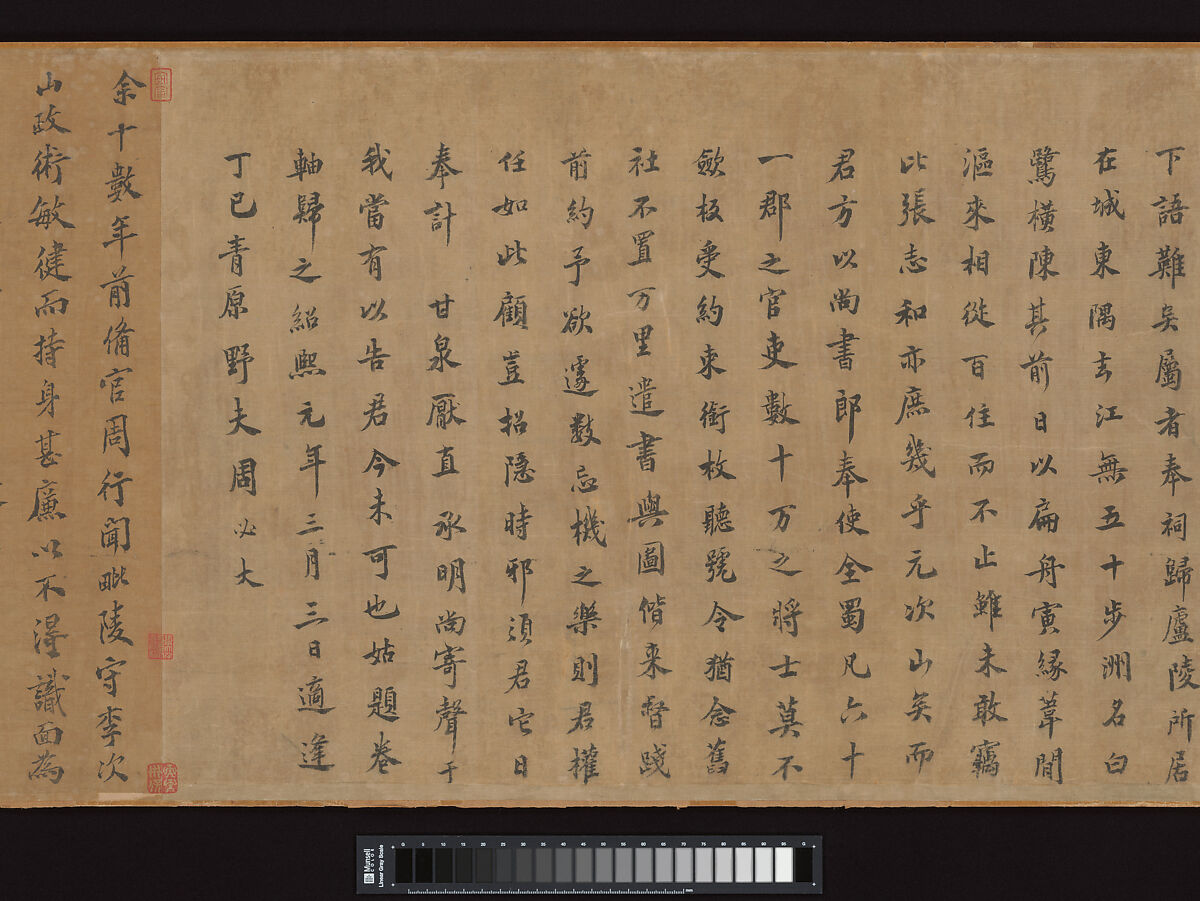 下語難矣屬者奉祠歸廬陵所居
在城東隅去江無五十步洲名白
鷺橫陳其前日以扁舟寅緣葦間
漚來相從百住而不止雖未敢竊
比張志和亦庶幾乎元次山矣而
君方以尚書郎奉使全蜀凡六十
一郡之官吏數十万之將士莫不
斂板受約束銜枚聽號令猶念舊
社不置万里遣書與圖偕來督踐
前約予欲遽數忘機之樂則君權
任如此顧豈招隱時邪須君它日
奉計 甘泉厭直 承明尚寄聲于
我當有以告君今未可也姑題卷
軸歸之紹熙元年三月三日適逢
丁巳青原野夫周必大
余十數年前備官周行聞毗陵守李次
山政術敏健而持身甚廉以不得識面為